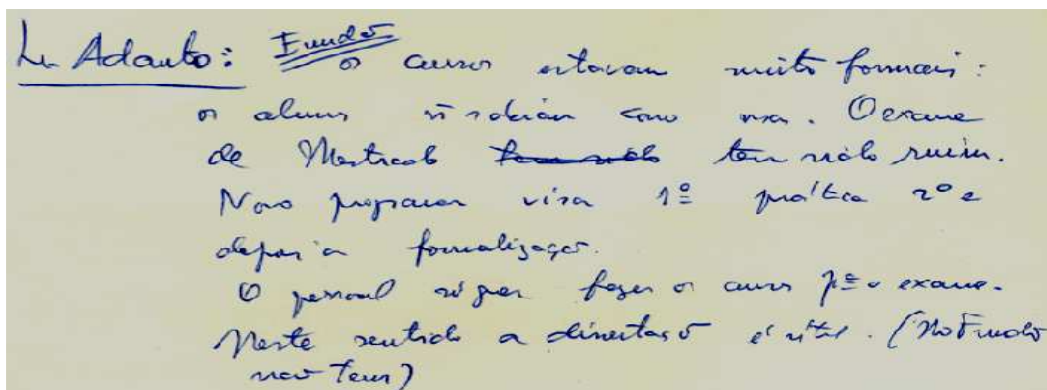 Luiz Adauto: Fundão os cursos estavam muito formais:
os alunos ñ sabiam como usar. O exame
de Mestrado tem sido ruim.
Novo programa visa 1º prática 2º e
depois a formalização.
O pessoal só quer fazer os cursos pº o exame.
Neste sentido a dissertação é útil. (No Fundão
não tem)